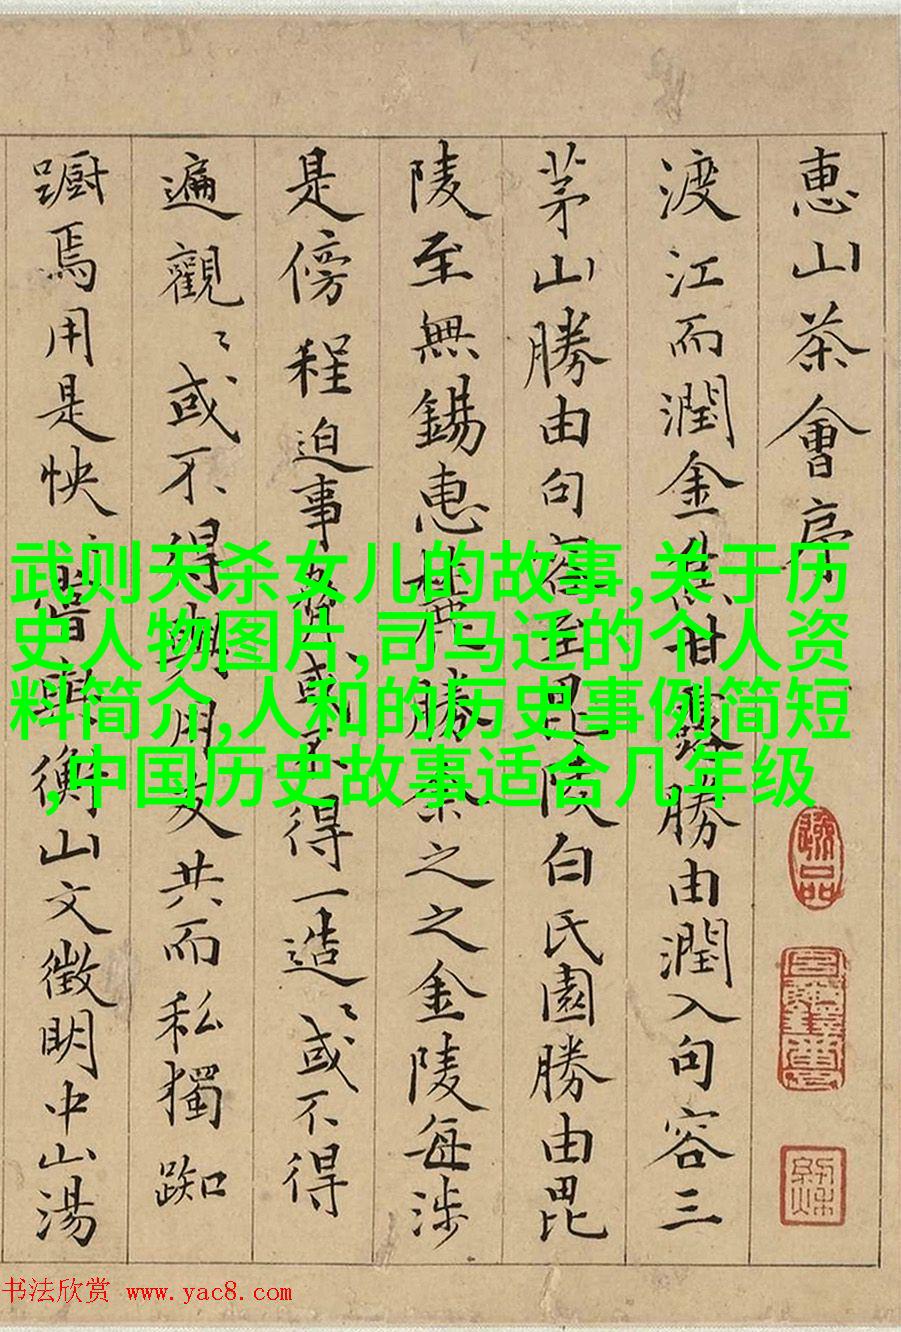 惠山茶會序
渡江而潤金焦甘露勝由潤入句容三
茅山勝由句容至毘陵白氏園勝由毘
陵至無錫惠麓勝余之之金陵每涉
是傍程迫事奪或不得一造〻或不得
遍觀〻或不得與朋友共而私獨踟
蹰焉用是怏〻嘗與衡山文徵明中山湯
逸品
武则天杀女儿的故事,关于历
史人物图片,司马迁的个人资
料简介,人和的历史事例简短
,中国历史故事适合几年级
书法欣赏 www.yac8.com